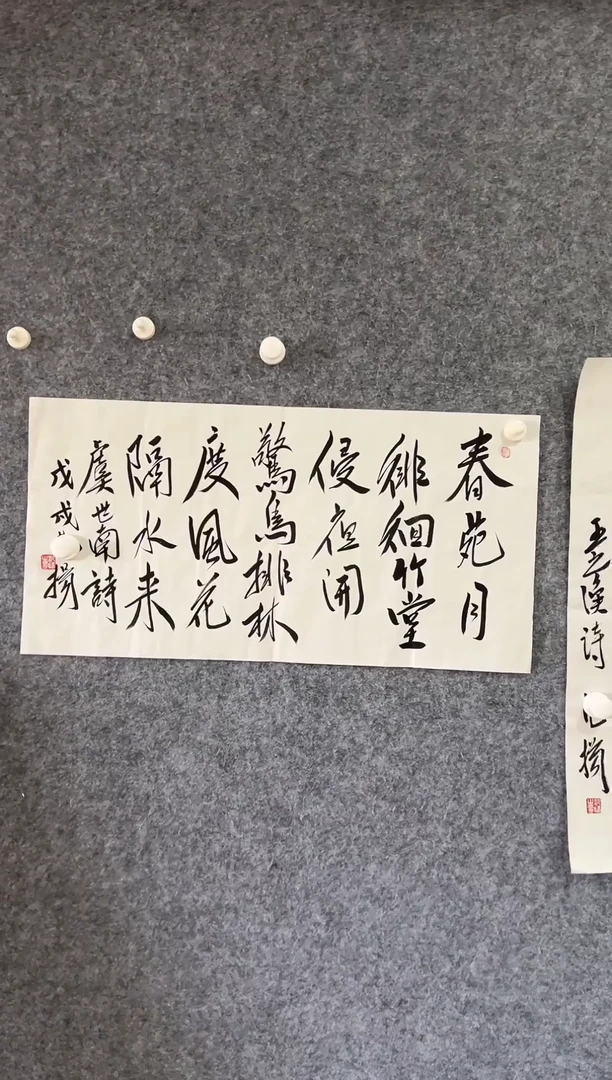 春苑月
徘徊竹堂
侵夜開
驚鳥排林
度風花
隔水来
虞世南詩
戊戌
王之渙詩